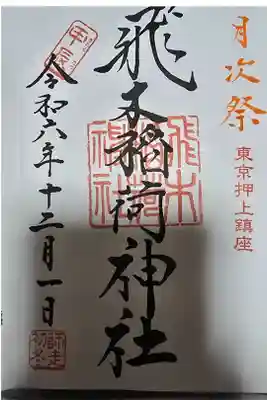 月次祭
東京押上鎮座
飛木稲荷神社
飛木稲荷神社
令和六年十二月一日
師走